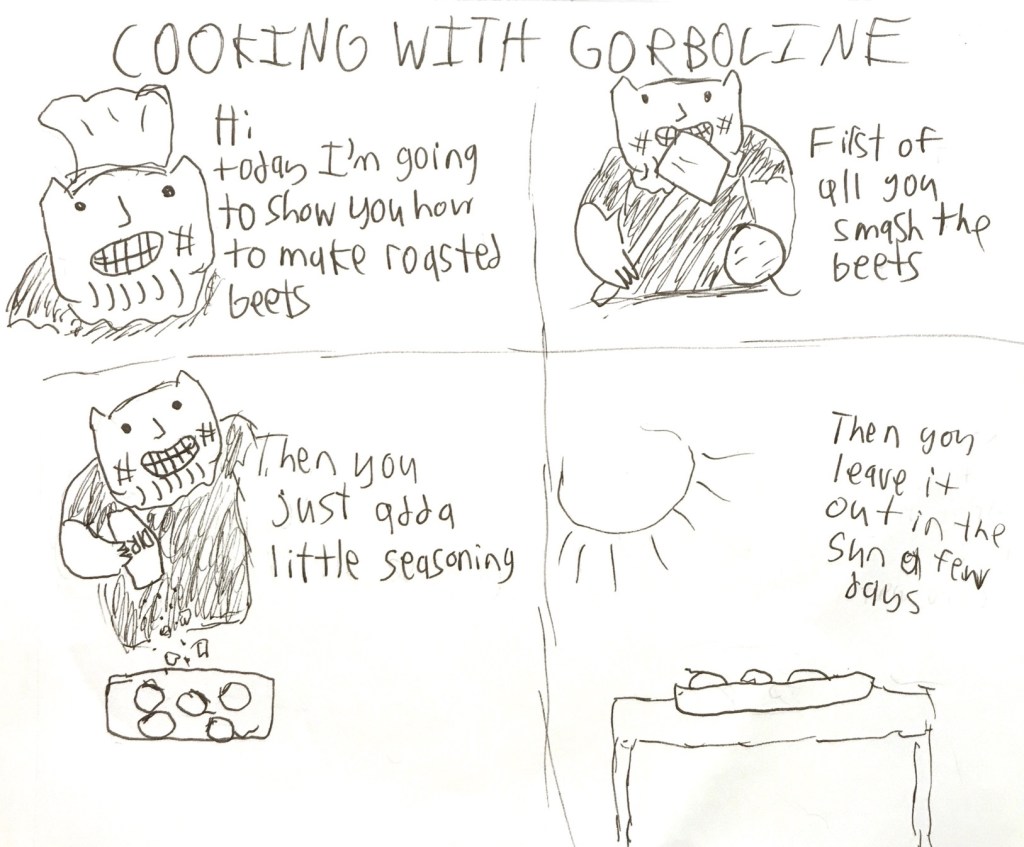 COOKING WITH GORBOLINE
Hi
today I'm going
to show you how
to make roasted
beets
First of
all you
smash the
beets
Then you
just adda
little seasoning
DIRT
Then you
leave it
out in the
sun a few
days